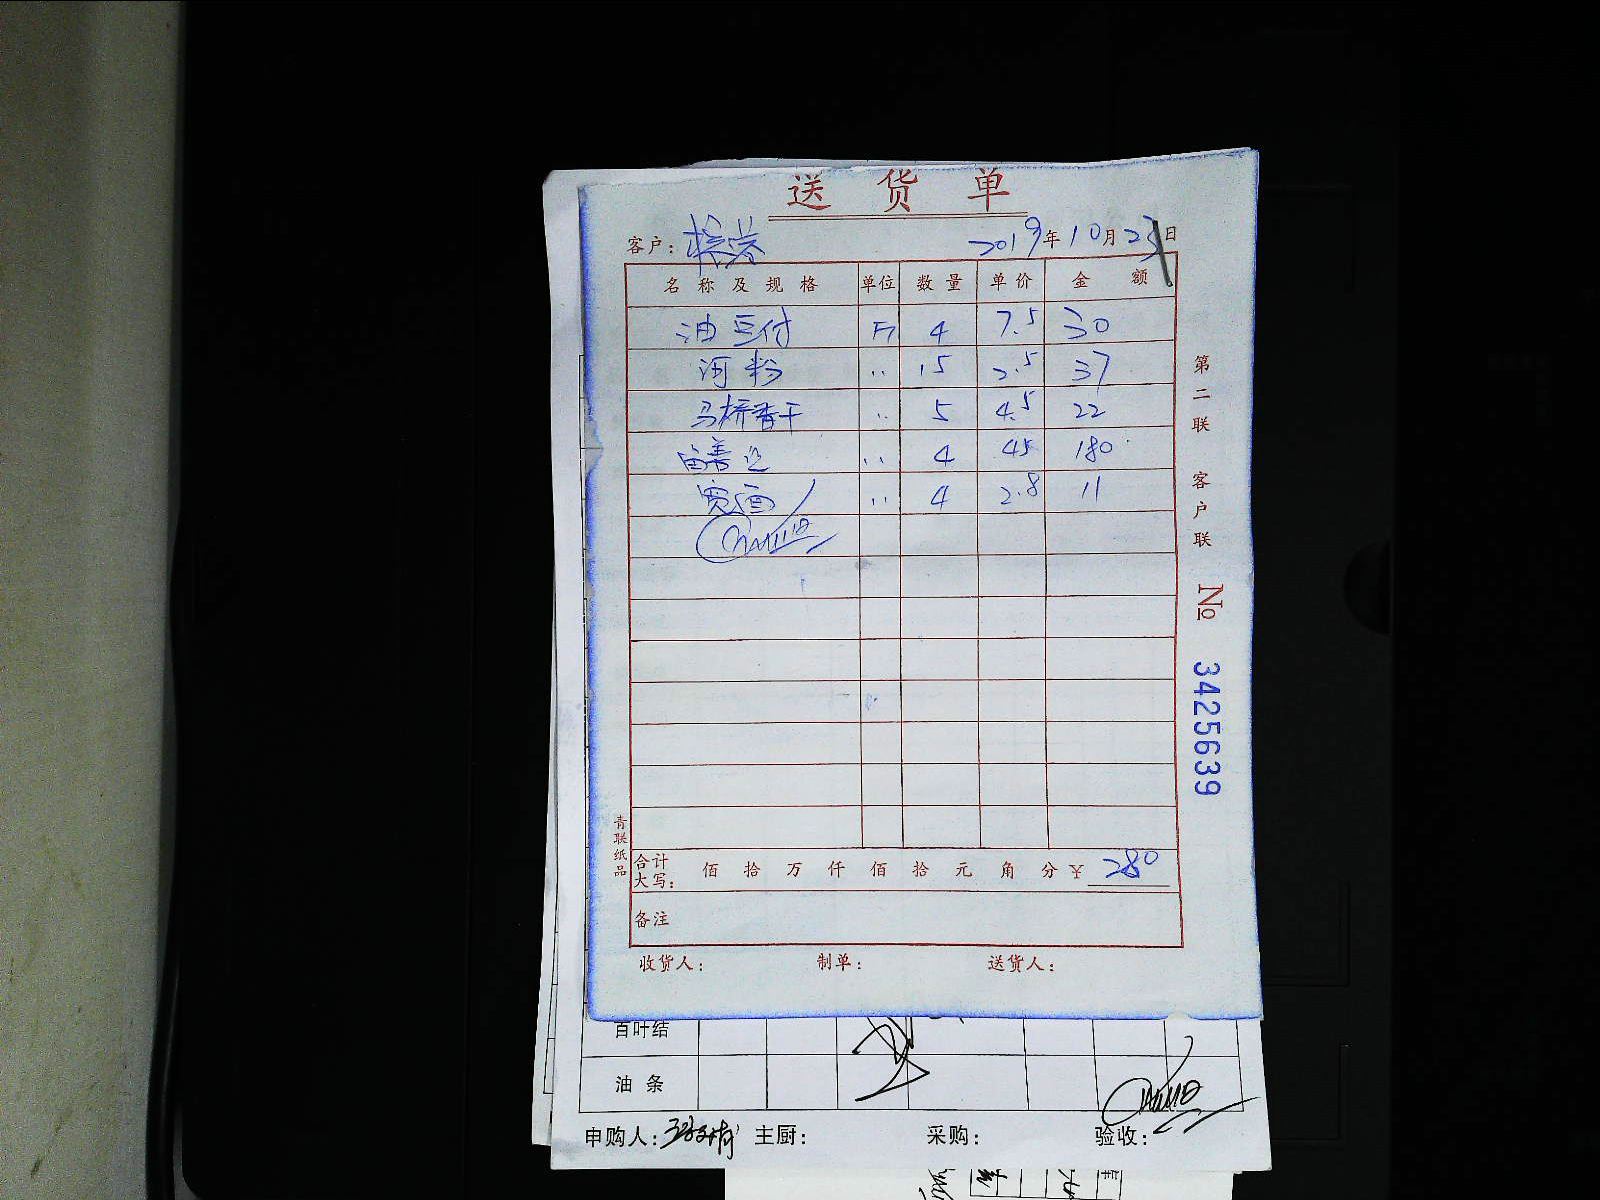 送货单
客户: 2019年10月23日
名称及规格 单位 数量 单价 金额
油豆付 斤 4 7.5 30
河粉 〃 15 2.5 37
马桥香干 〃 5 4.5 22
〃 4 45 180
宽面 〃 4 2.8 11
合计大写: 佰 拾 万 仟 佰 拾 元 角 分 ¥ 280
备注
收货人: 制单: 送货人:
青联纸品
第二联 客户联
№ 3425639
百叶结
油条
申购人: 主厨: 采购: 验收: